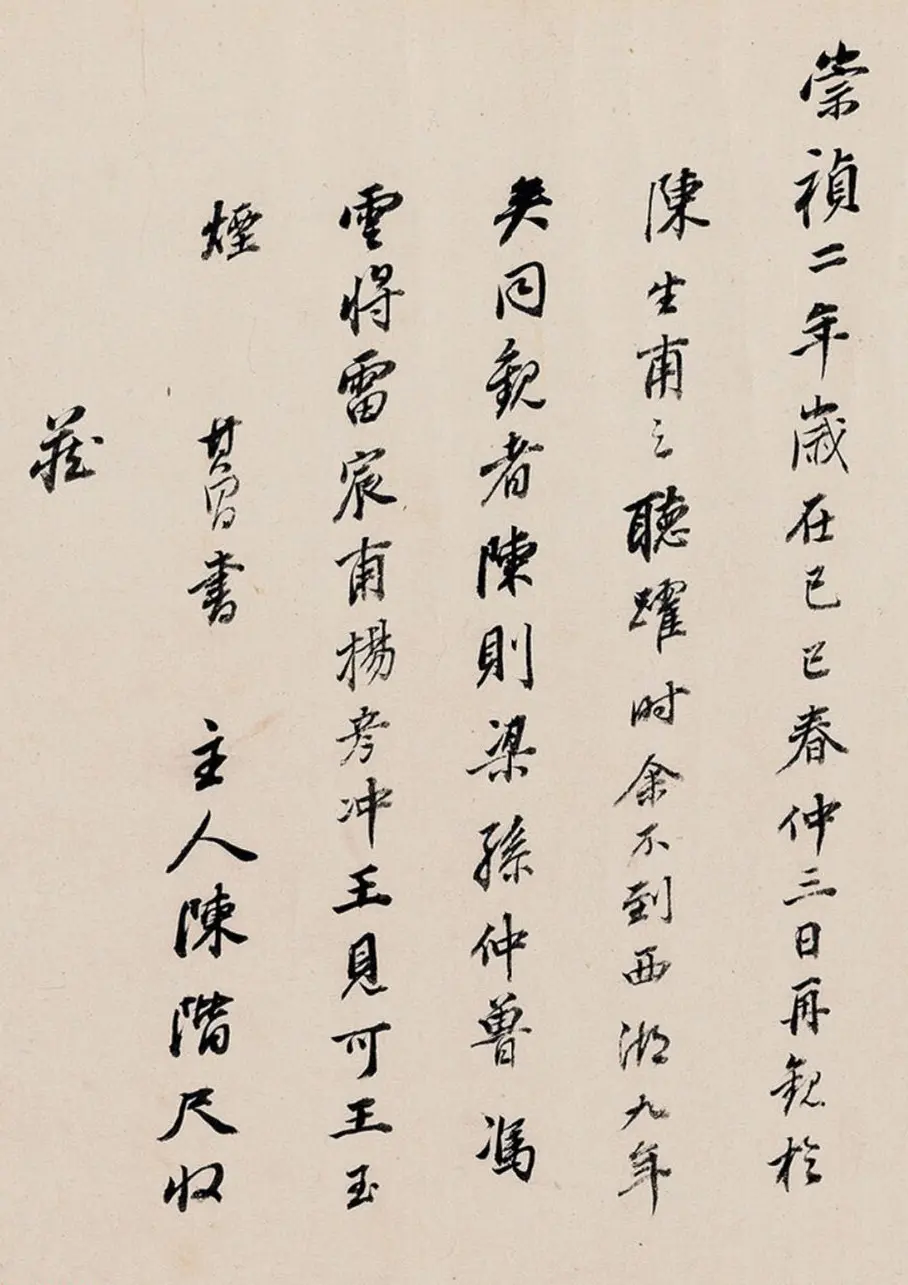 崇禎二年歲在己巳春仲三日再觀於
陳生甫之聽躍時余不到西湖九年
矣同觀者陳則梁孫仲魯馮
雲將雷宸甫楊彥冲王見可王玉
煙 其昌書 主人陳階尺收
藏